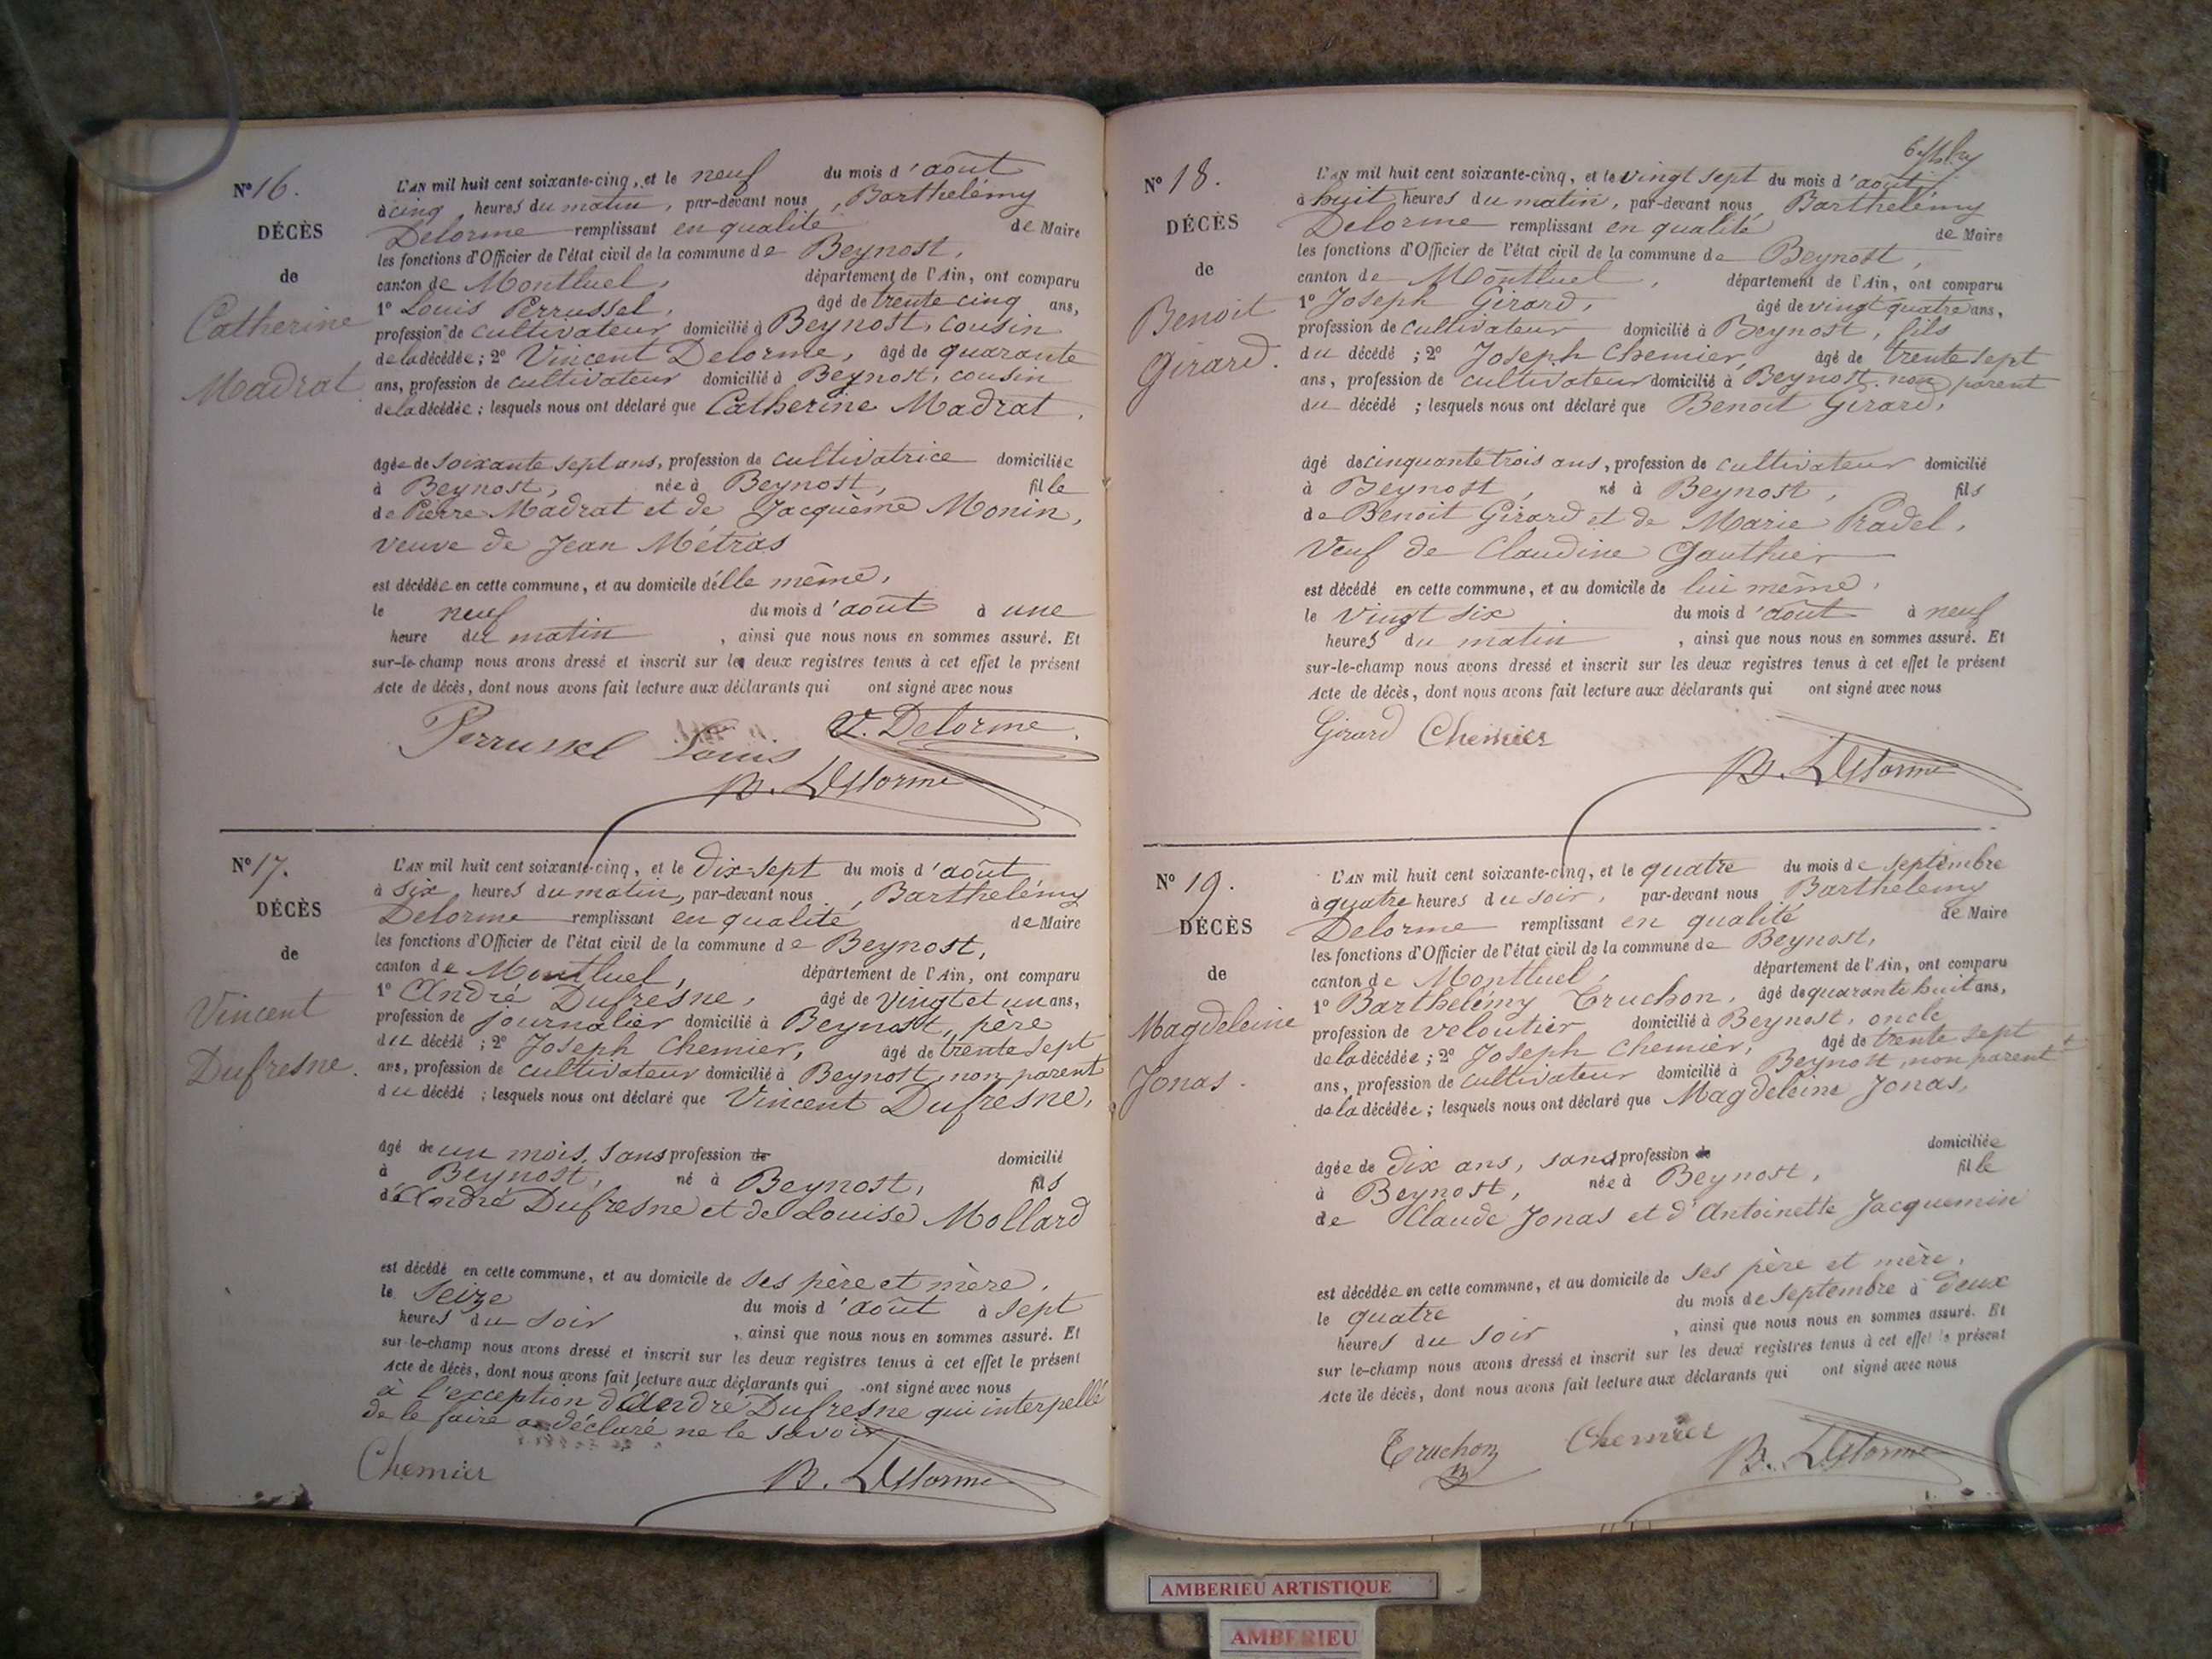 N° 16.
DÉCÈS
de
Catherine
Madrat
L'AN mil huit cent soixante-cinq, et le neuf du mois d'août
à cinq heures du matin, par-devant nous, Barthelémy
Delorme remplissant en qualité de Maire
les fonctions d'Officier de l'état civil de la commune de Beynost,
canton de Montluel, département de l'Ain, ont comparu
1° Louis Perrussel, âgé de trente cinq ans,
profession de cultivateur domicilié à Beynost, cousin
de la décédée ; 2° Vincent Delorme, âgé de quarante
ans, profession de cultivateur domicilié à Beynost, cousin
de la décédée ; lesquels nous ont déclaré que Catherine Madrat,
âgée de soixante sept ans, profession de cultivatrice domiciliée
à Beynost, née à Beynost, fille
de Pierre Madrat et de Jacquème Monin,
veuve de Jean Métras
est décédée en cette commune, et au domicile d'elle même,
le neuf du mois d'août à une
heure du matin, ainsi que nous nous en sommes assuré. Et
sur-le-champ nous avons dressé et inscrit sur les deux registres tenus à cet effet le présent
Acte de décès, dont nous avons fait lecture aux déclarants qui ont signé avec nous
Perrussel Louis V. Delorme
B. Delorme
N° 17.
DÉCÈS
de
Vincent
Dufresne.
L'AN mil huit cent soixante-cinq, et le dix-sept du mois d'août
à six heures du matin, par-devant nous, Barthelémy
Delorme remplissant en qualité de Maire
les fonctions d'Officier de l'état civil de la commune de Beynost,
canton de Montluel, département de l'Ain, ont comparu
1° André Dufresne, âgé de vingt et un ans,
profession de journalier domicilié à Beynost, père
du décédé ; 2° Joseph Chemier, âgé de trente sept
ans, profession de cultivateur domicilié à Beynost, non parent
du décédé ; lesquels nous ont déclaré que Vincent Dufresne,
âgé de un mois, sans profession de domicilié
à Beynost, né à Beynost, fils
d'André Dufresne et de Louise Mollard
est décédé en cette commune, et au domicile de ses père et mère,
le seize du mois d'août à sept
heures du soir, ainsi que nous nous en sommes assuré. Et
sur-le-champ nous avons dressé et inscrit sur les deux registres tenus à cet effet le présent
Acte de décès, dont nous avons fait lecture aux déclarants qui ont signé avec nous
à l'exception d'André Dufresne qui interpellé
de le faire a déclaré ne le savoir
Chemier B. Delorme
N° 18.
DÉCÈS
de
Benoit
Girard.
L'AN mil huit cent soixante-cinq, et le vingt sept du mois d'août,
à huit heures du matin, par-devant nous Barthelémy
Delorme remplissant en qualité de Maire
les fonctions d'Officier de l'état civil de la commune de Beynost,
canton de Montluel, département de l'Ain, ont comparu
1° Joseph Girard, âgé de vingt quatre ans,
profession de cultivateur domicilié à Beynost, fils
du décédé ; 2° Joseph Chemier, âgé de trente sept
ans, profession de cultivateur domicilié à Beynost, non parent
du décédé ; lesquels nous ont déclaré que Benoit Girard,
âgé de cinquante trois ans, profession de cultivateur domicilié
à Beynost, né à Beynost, fils
de Benoit Girard et de Marie Pradel,
Veuf de Claudine Gauthier
est décédé en cette commune, et au domicile de lui même,
le vingt six du mois d'août à neuf
heures du matin, ainsi que nous nous en sommes assuré. Et
sur-le-champ nous avons dressé et inscrit sur les deux registres tenus à cet effet le présent
Acte de décès, dont nous avons fait lecture aux déclarants qui ont signé avec nous
Girard Chemier
B. Delorme
N° 19.
DÉCÈS
de
Magdeleine
Jonas.
L'AN mil huit cent soixante-cinq, et le quatre du mois de septembre
à quatre heures du soir, par-devant nous Barthelémy
Delorme remplissant en qualité de Maire
les fonctions d'Officier de l'état civil de la commune de Beynost,
canton de Montluel, département de l'Ain, ont comparu
1° Barthelémy Truchon, âgé de quarante huit ans,
profession de veloutier domicilié à Beynost, oncle
de la décédée ; 2° Joseph Chemier, âgé de trente sept
ans, profession de cultivateur domicilié à Beynost, non parent
de la décédée ; lesquels nous ont déclaré que Magdeleine Jonas,
âgée de dix ans, sans profession de domiciliée
à Beynost, née à Beynost, fille
de Claude Jonas et d'Antoinette Jacquemin
est décédée en cette commune, et au domicile de ses père et mère,
le quatre du mois de septembre à deux
heures du soir, ainsi que nous nous en sommes assuré. Et
sur le-champ nous avons dressé et inscrit sur les deux registres tenus à cet effet le présent
Acte de décès, dont nous avons fait lecture aux déclarants qui ont signé avec nous
Truchon Chemier B. Delorme
AMBERIEU ARTISTIQUE
AMBERIEU